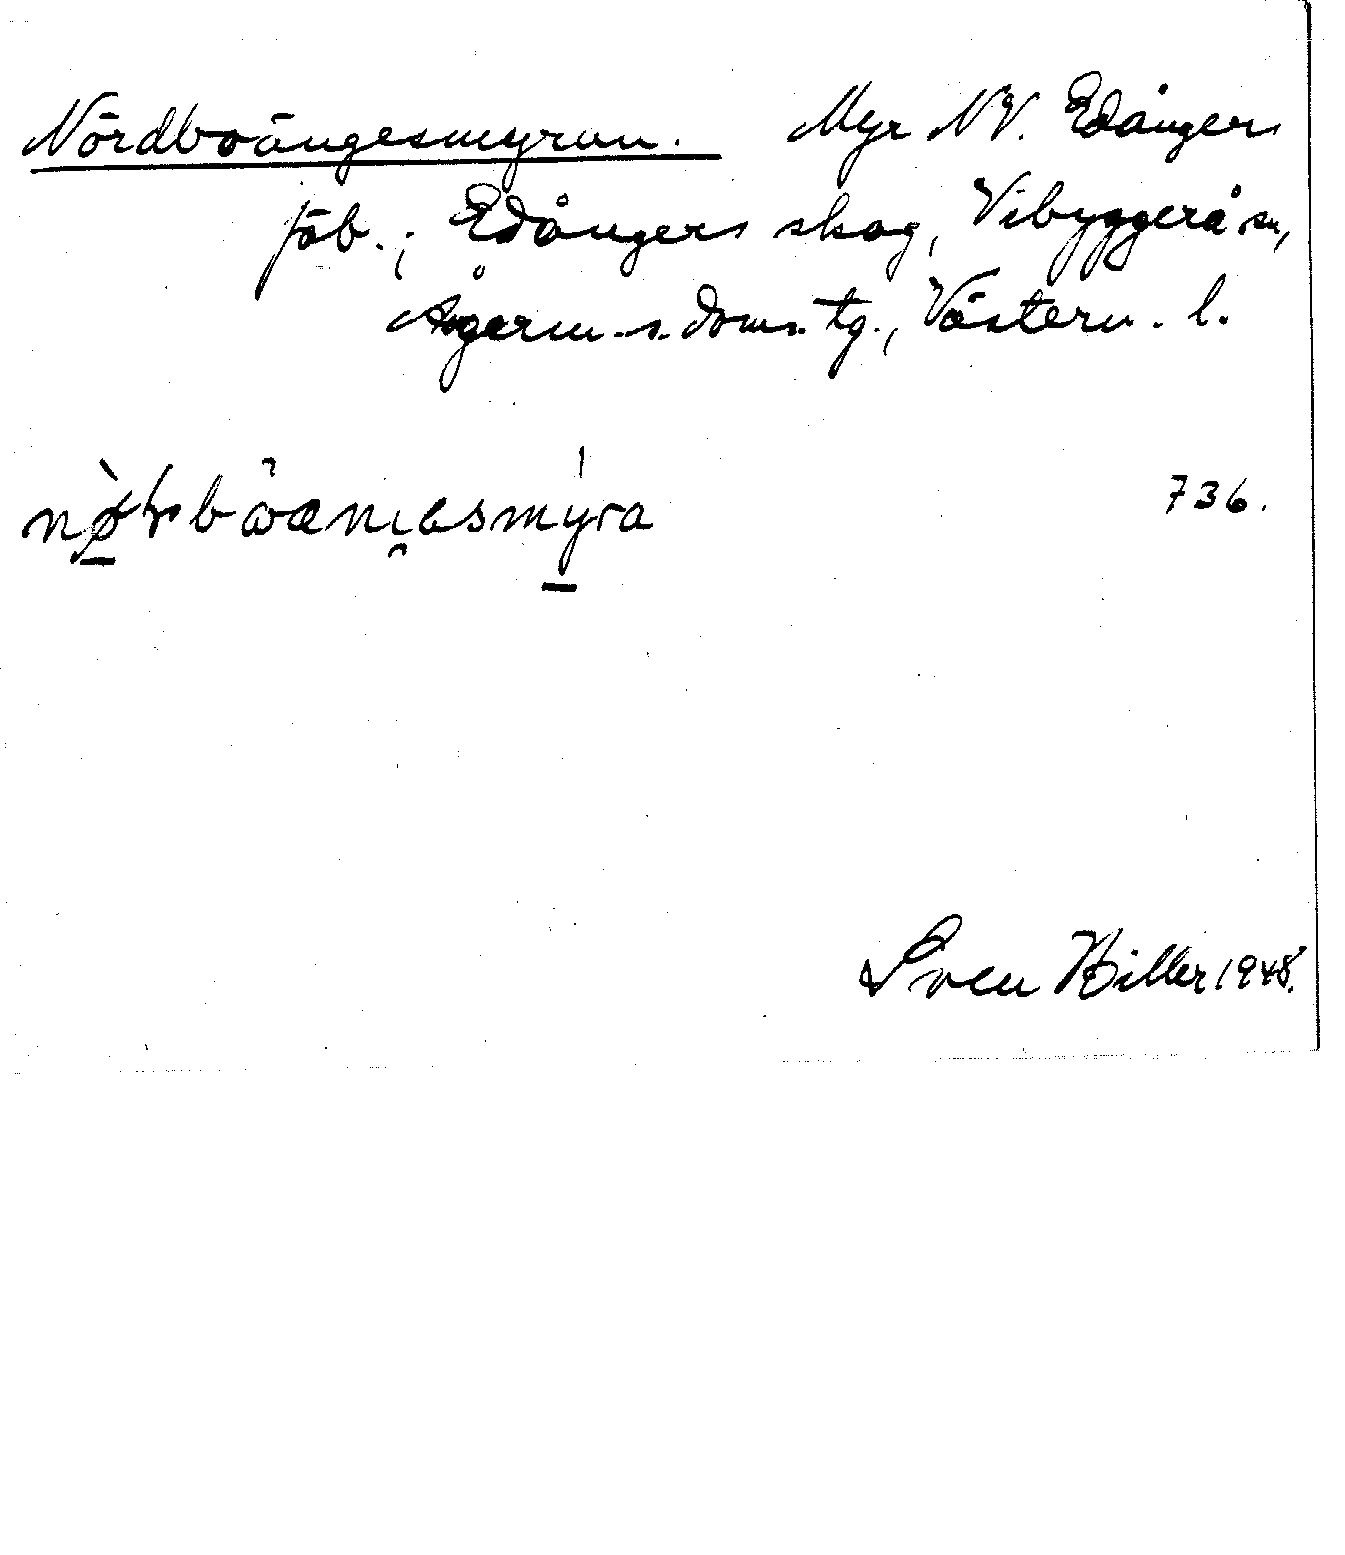 Nördboängesmyran. Myr NV. Edångers
fäb.; Edångers skog, Vibyggerå sn,
Ångerm. s. doms. tg., Västern. l.
736.
Sven Hiller 1948.